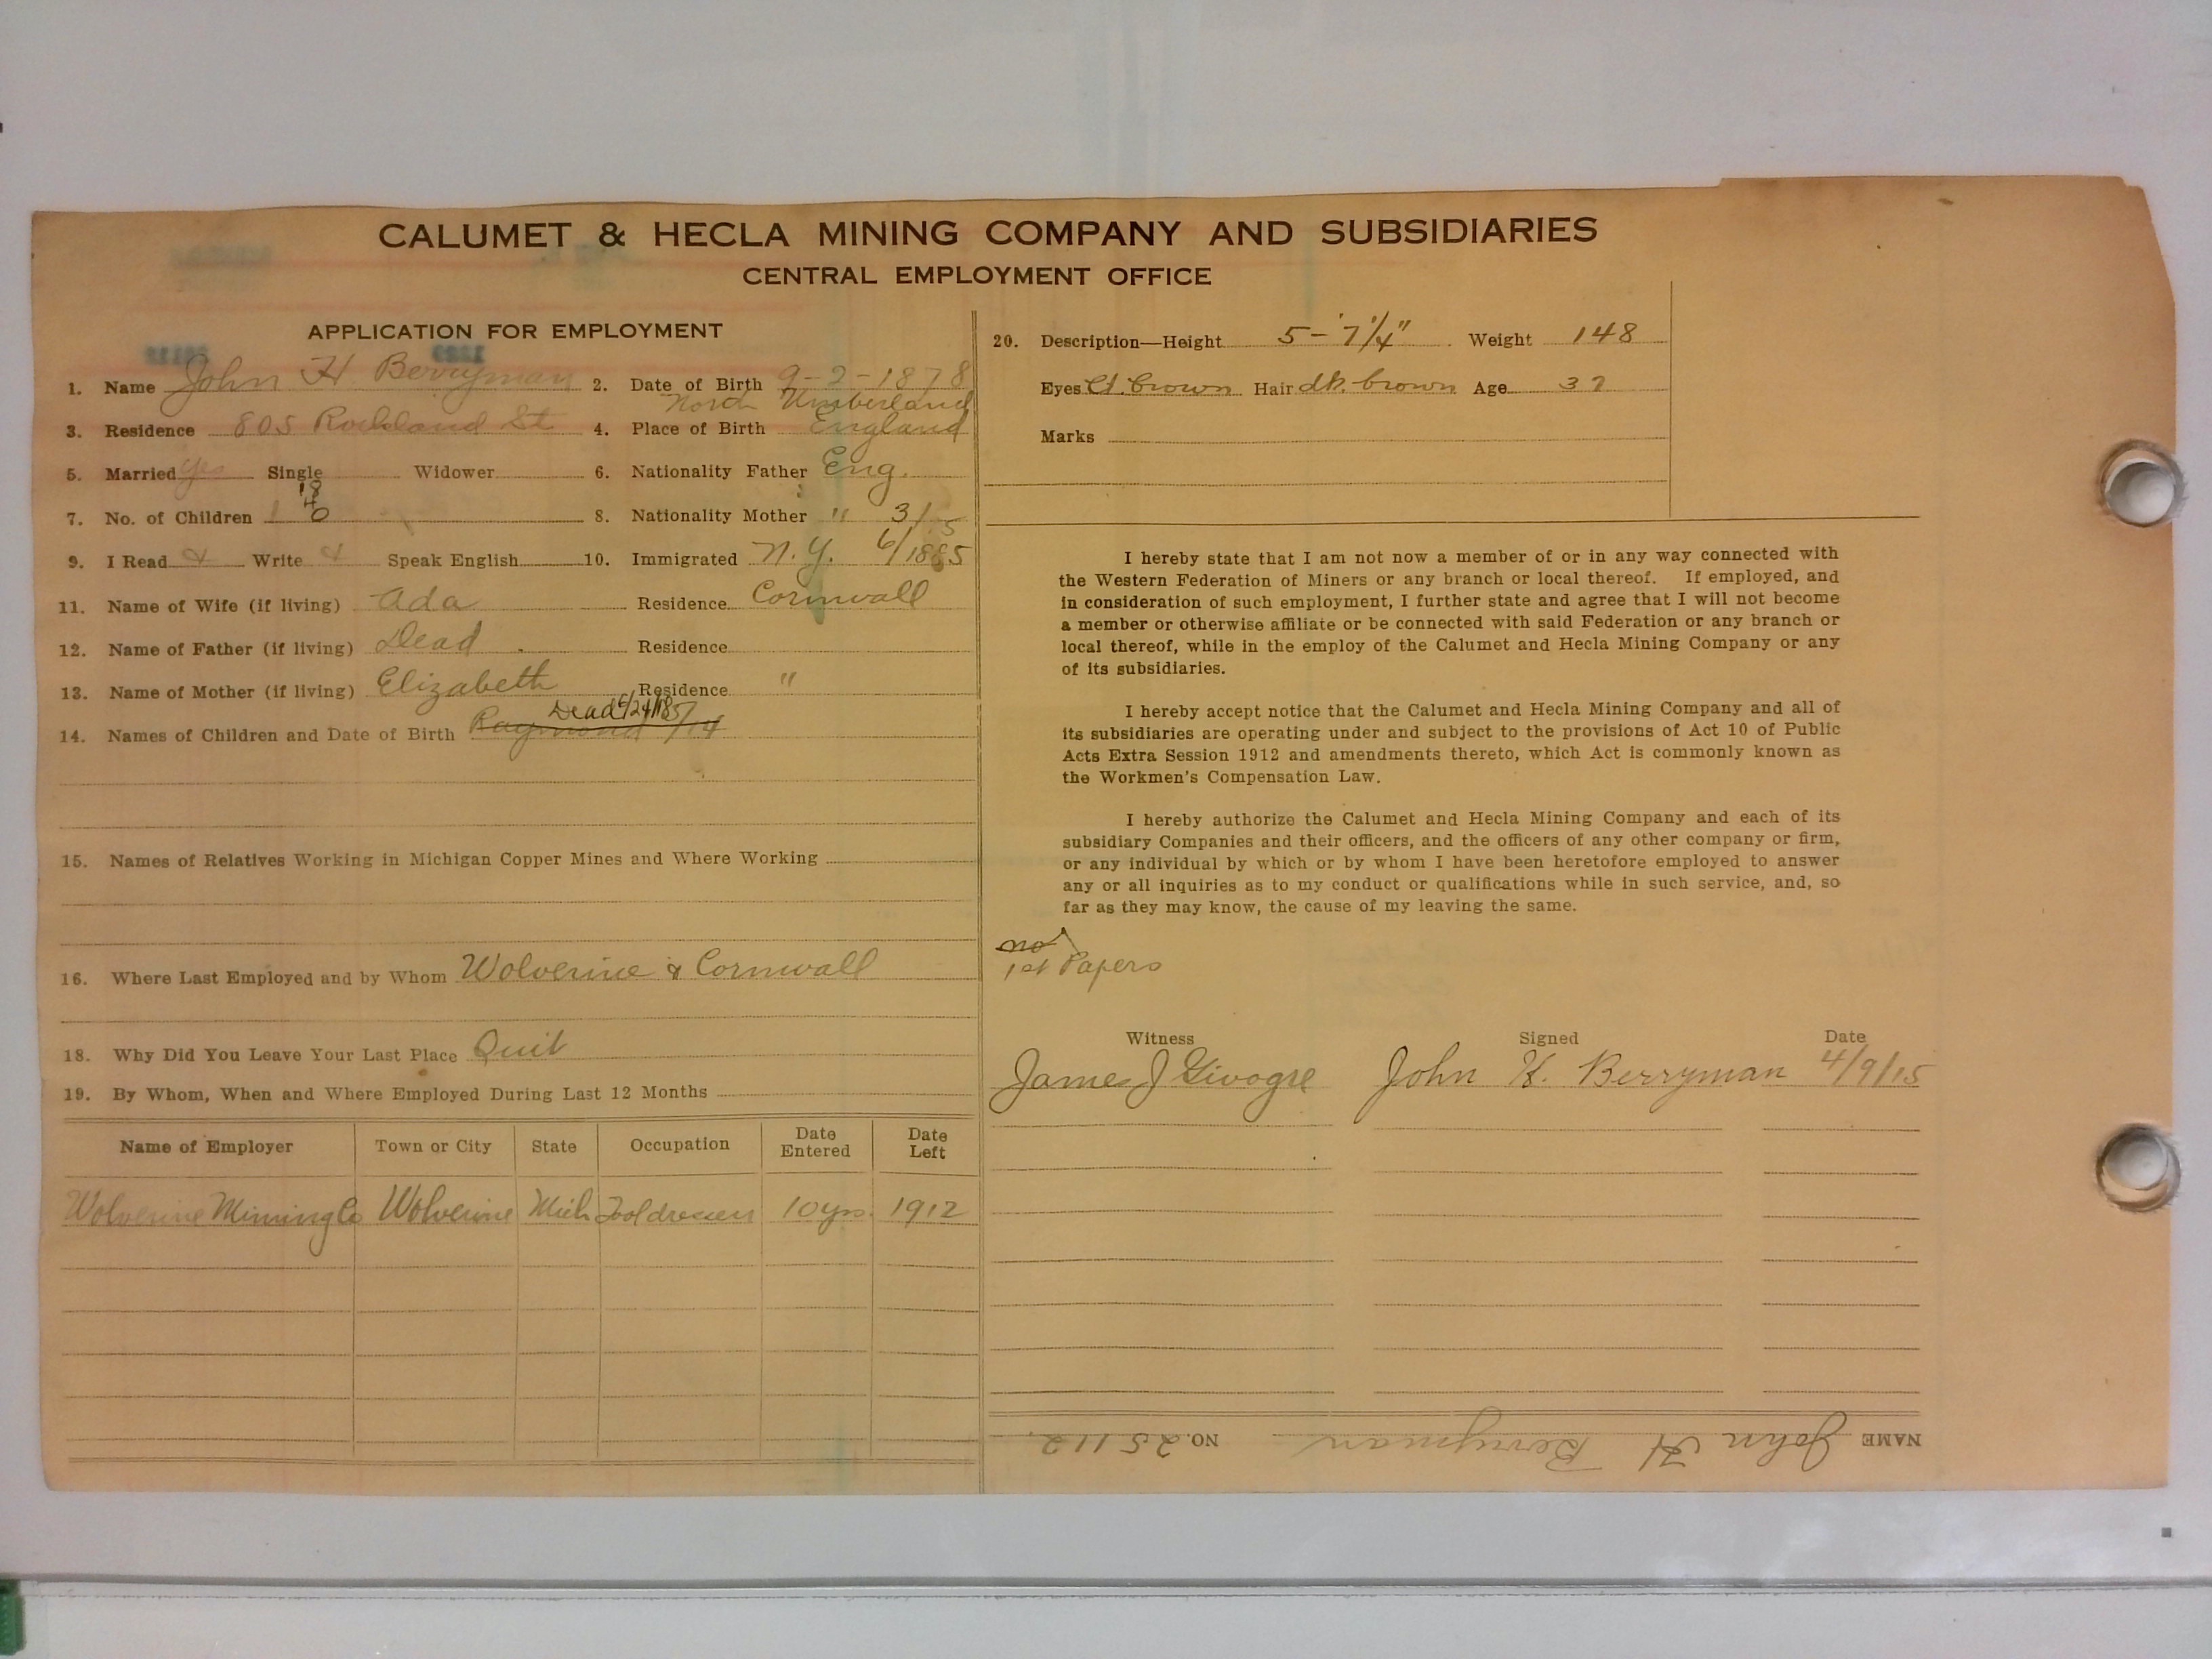 CALUMET & HECLA MINING COMPANY AND SUBSIDIARIES
CENTRAL EMPLOYMENT OFFICE
APPLICATION FOR EMPLOYMENT
1. Name John H Berryman 2. Date of Birth 9-2-1878
North Umberland
3. Residence 805 Rockland St 4. Place of Birth England
5. Married yes Single Widower 6. Nationality Father Eng.
7. No. of Children 8. Nationality Mother "
9. I Read & Write & Speak English 10. Immigrated N.Y. 6/1885
11. Name of Wife (if living) Ada Residence Cornwall
12. Name of Father (if living) Dead Residence
13. Name of Mother (if living) Elizabeth Residence "
Dead
14. Names of Children and Date of Birth Raymond /14
15. Names of Relatives Working in Michigan Copper Mines and Where Working
16. Where Last Employed and by Whom Wolverine & Cornwall
18. Why Did You Leave Your Last Place Quit
19. By Whom, When and Where Employed During Last 12 Months
Name of Employer Town or City State Occupation Date Entered Date Left
Wolverine Mining Co Wolverine Mich Tooldresser 10 yrs. 1912
20. Description—Height 5-'7 1/4" Weight 148
Eyes Lt. brown Hair dk. brown Age 37
Marks
I hereby state that I am not now a member of or in any way connected with
the Western Federation of Miners or any branch or local thereof. If employed, and
in consideration of such employment, I further state and agree that I will not become
a member or otherwise affiliate or be connected with said Federation or any branch or
local thereof, while in the employ of the Calumet and Hecla Mining Company or any
of its subsidiaries.
I hereby accept notice that the Calumet and Hecla Mining Company and all of
its subsidiaries are operating under and subject to the provisions of Act 10 of Public
Acts Extra Session 1912 and amendments thereto, which Act is commonly known as
the Workmen's Compensation Law.
I hereby authorize the Calumet and Hecla Mining Company and each of its
subsidiary Companies and their officers, and the officers of any other company or firm,
or any individual by which or by whom I have been heretofore employed to answer
any or all inquiries as to my conduct or qualifications while in such service, and, so
far as they may know, the cause of my leaving the same.
no
1st Papers
Witness Signed Date
James J John H. Berryman 4/9/15
NAME John H Berryman NO. 25112